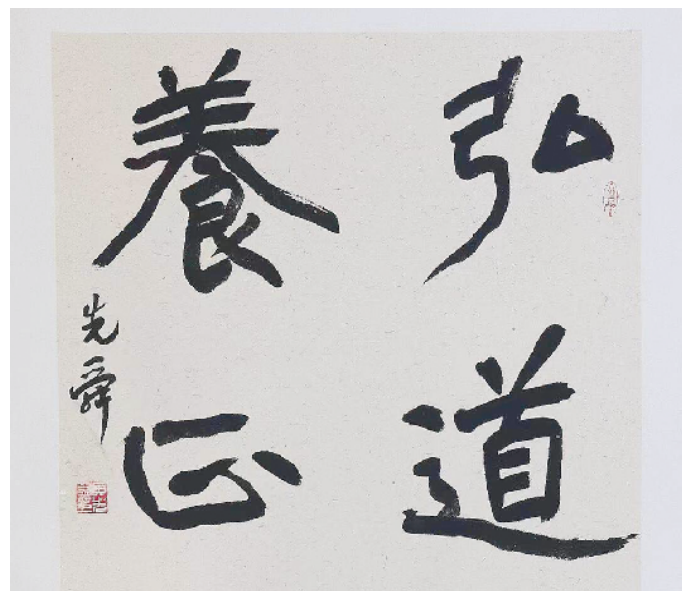 弘道
養正
先舜